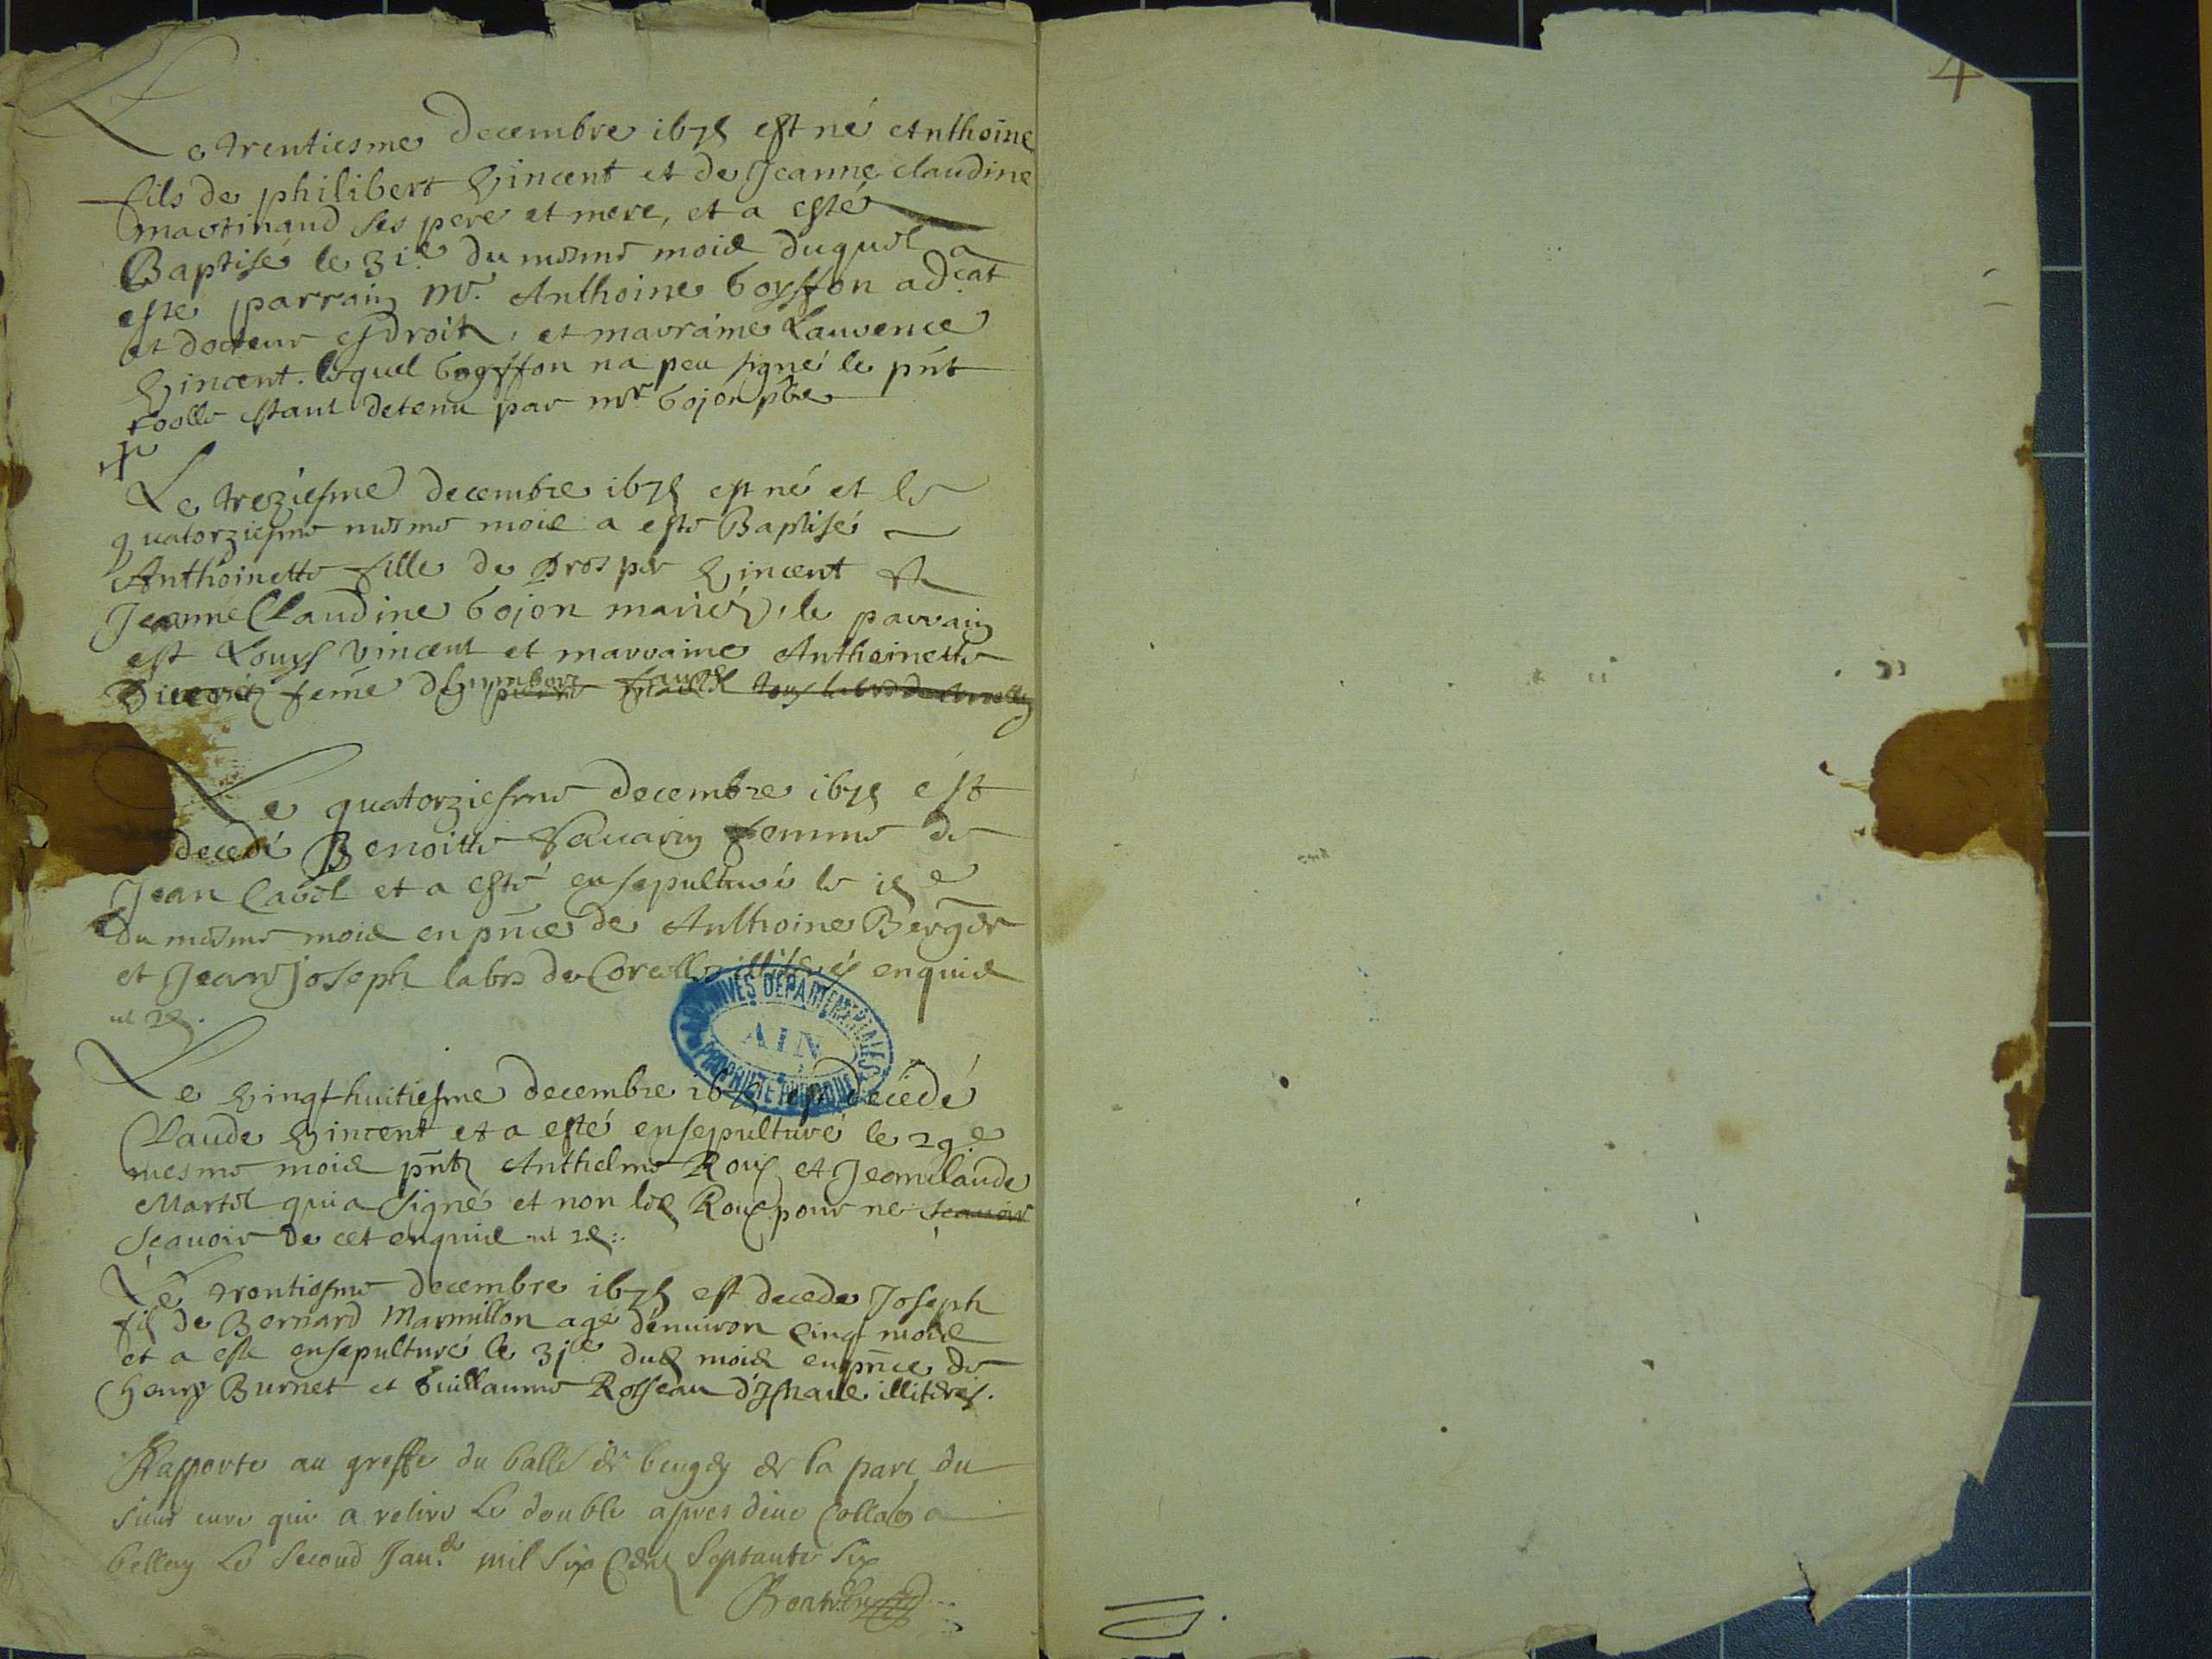 4
Le trentiesme decembre 1675 est né Anthoine
fils de philibert Vincent et de Jeanne claudine
martinand ses pere et mere, et a esté
Baptisé le 31e du mesme mois duquel a
esté parrain mr. Anthoine boysson adcat
et docteur esdroitz, et marraine Laurence
Vincent. lequel boysson na peu signé le pnt
roolle estant detenu par mr bojon pbre
Le treziesme decembre 1675 est né et le
quatorziesme mesme mois a este Baptisé
Anthoinette fille de Prosper Vincent et
Jeanne Claudine bojon mariés, le parrain
est Louys Vincent et marraine Anthoinette
feme
Le quatorziesme decembre 1675 est
decedé Benoitte Savarin femme de
Jean Cavel et a esté ensepulturé le 15e
du mesme mois en pnce de Anthoine Berger
et Jean Joseph labrs de illiterés enquis
ut 2s.
ARCHIVES DEPARTEMENTALES
AIN
PROPRIETE PUBLIQUE
Le Vingthuitiesme decembre 1675 est decédé
Claude Vincent et a esté ensepulturé le 29e
mesme mois pntz Anthelme Roux et Jeanclaude
Martel qui a signé et non led Roux pour ne scavoir
scavoir de cet enquis ut 2s.
Le trentiesme decembre 1675 est decede Joseph
fils de Bernard Marmillon agé d'enuiron cinq mois
et a este ensepulturé le 31e dud mois enpnce de
henry Burnet et Guillaume Rosseau illiterés.
Rapporte au greffe du balle de beugey de la part du
sieur cure qui a retire le double apres deue Collaon a
belley le second Janer mil six Centz septante six